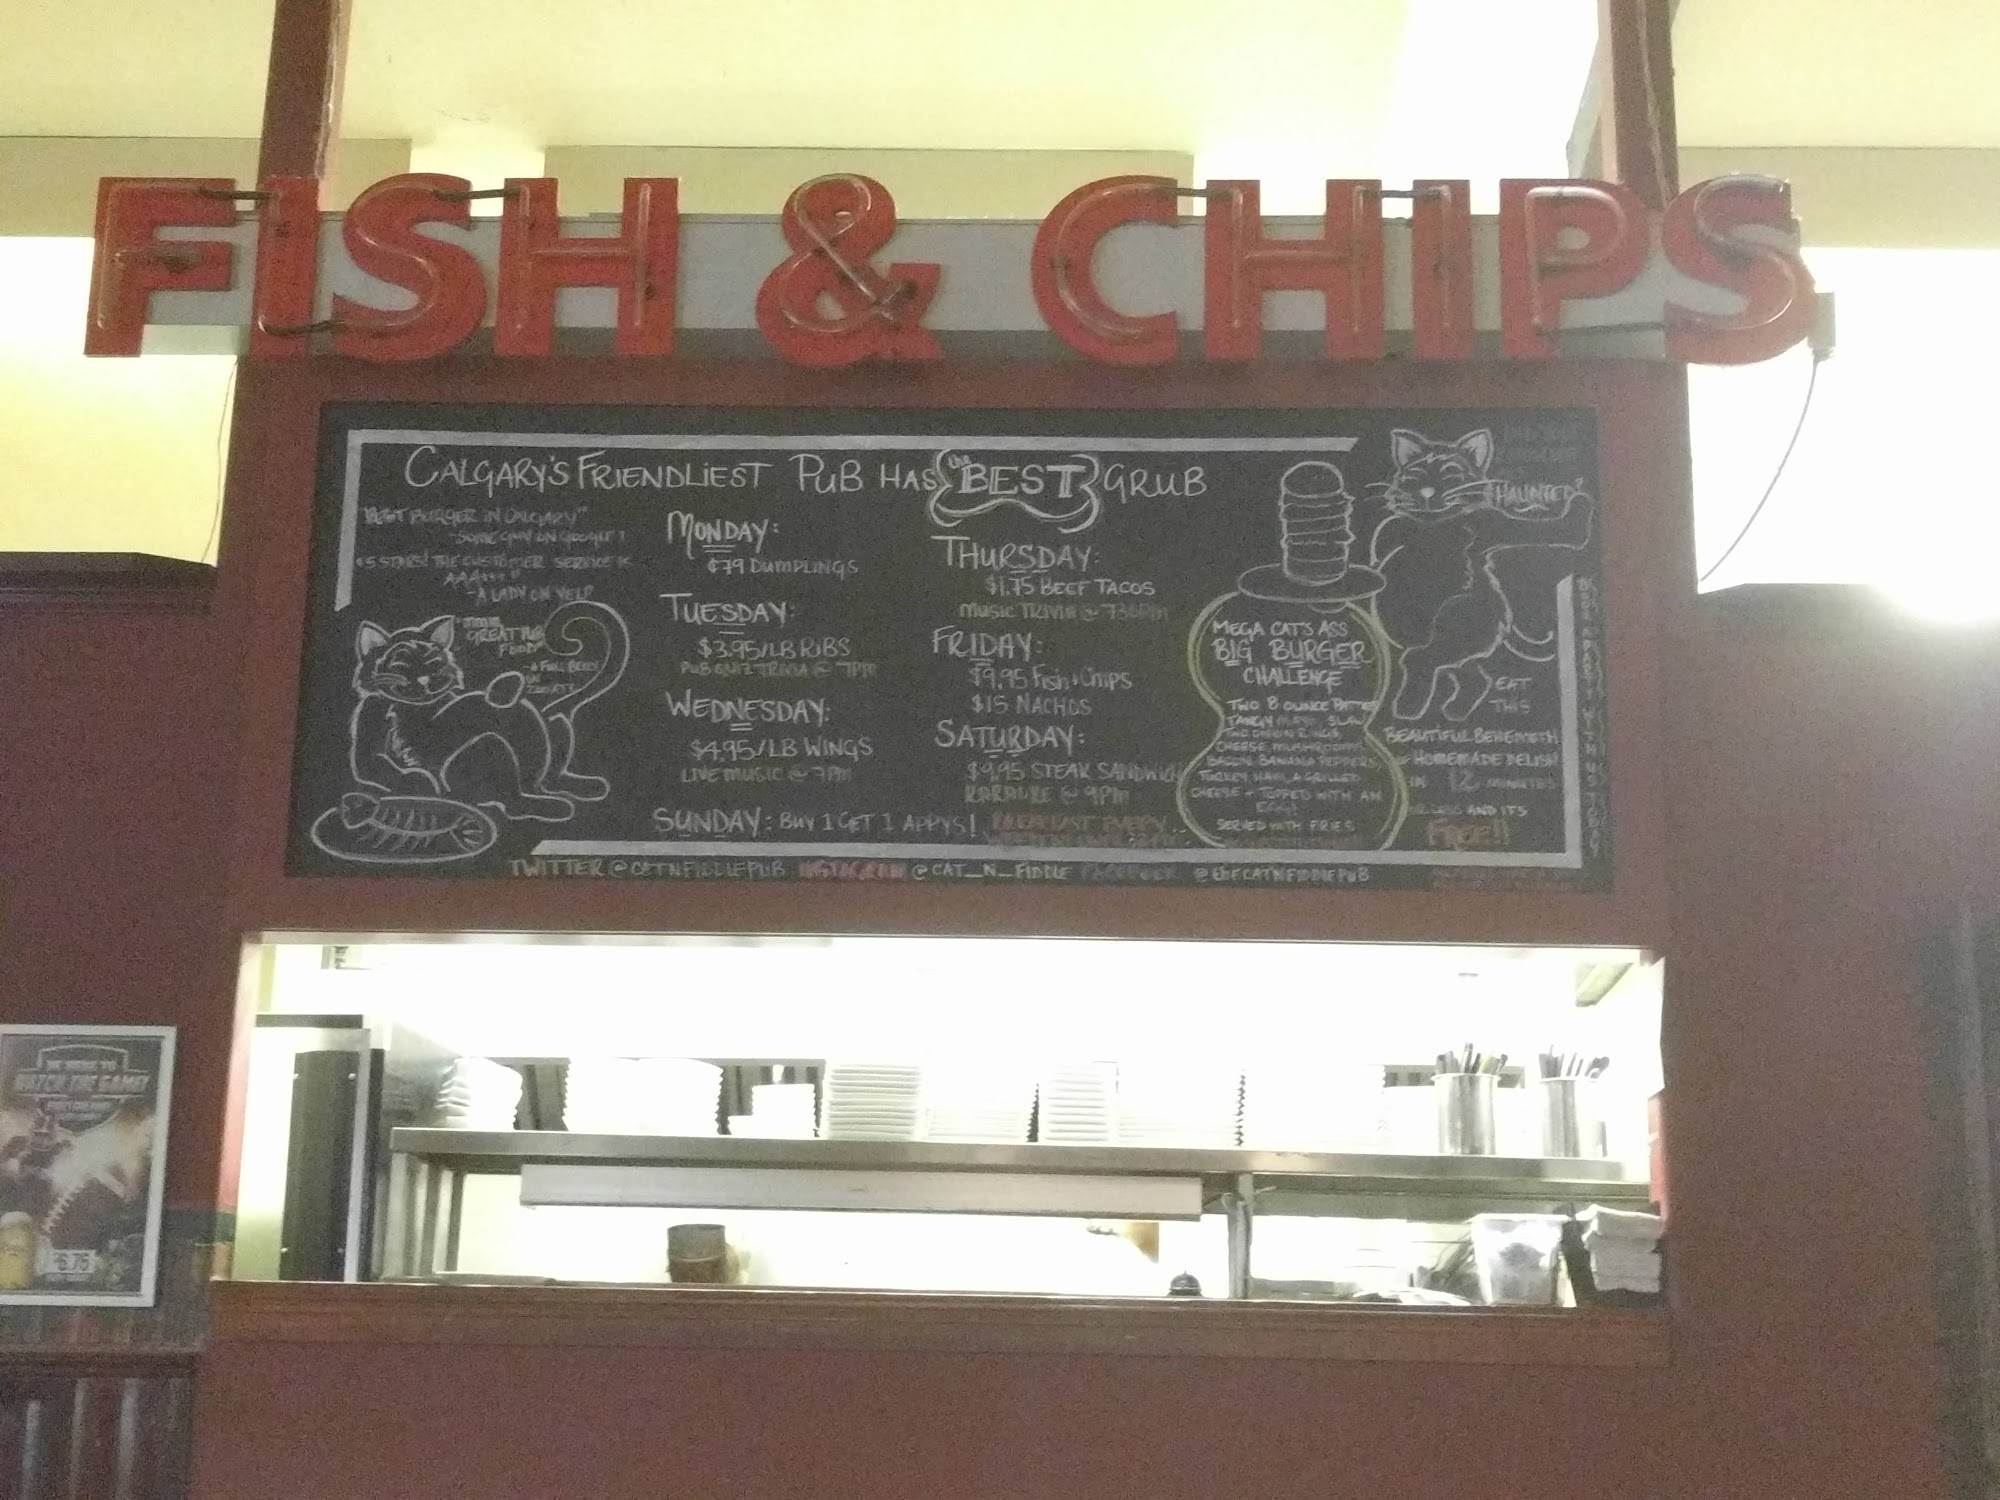 FISH & CHIPS
CALGARY'S FRIENDLIEST PUB HAS the BEST GRUB
"BEST BURGER IN CALGARY"
-SOME GUY ON GOOGLE
5 STARS! THE CUSTOMER SERVICE IS
AAA+++"
-A LADY ON YELP
"mmm
GREAT PUB
FOOD"
-A FULL BELLY
MONDAY:
¢79 DUMPLINGS
TUESDAY:
$3.95/LB RIBS
PUB QUIZ TRIVIA @ 7PM
WEDNESDAY:
$4.95/LB WINGS
LIVE MUSIC @ 7PM
THURSDAY:
$1.75 BEEF TACOS
MUSIC TRIVIA @ 730PM
FRIDAY:
$9.95 Fish + Chips
$15 NACHOS
SATURDAY:
$9.95 STEAK SANDWICH
KARAOKE @ 9PM
SUNDAY: BUY 1 GET 1 APPYS!
BREAKFAST EVERY
MEGA CAT'S ASS
BIG BURGER
CHALLENGE
TWO 8 OUNCE PATTIES
TANGY MAYO, SLAW
TWO ONION RINGS
CHEESE, MUSHROOMS
BACON, BANANA PEPPERS
TURKEY, HAM, A GRILLED
CHEESE + TOPPED WITH AN
EGG!
SERVED WITH FRIES
HAUNTED?
EAT
THIS
BEAUTIFUL BEHEMOTH
OF HOMEMADE DELISH
IN 12 MINUTES
OR LESS AND ITS
FREE!!
TWITTER @CATNFIDDLEPUB INSTAGRAM @CAT_N_FIDDLE FACEBOOK @thECATNFIDDLEPUB
WATCH THE GAME!
6.75